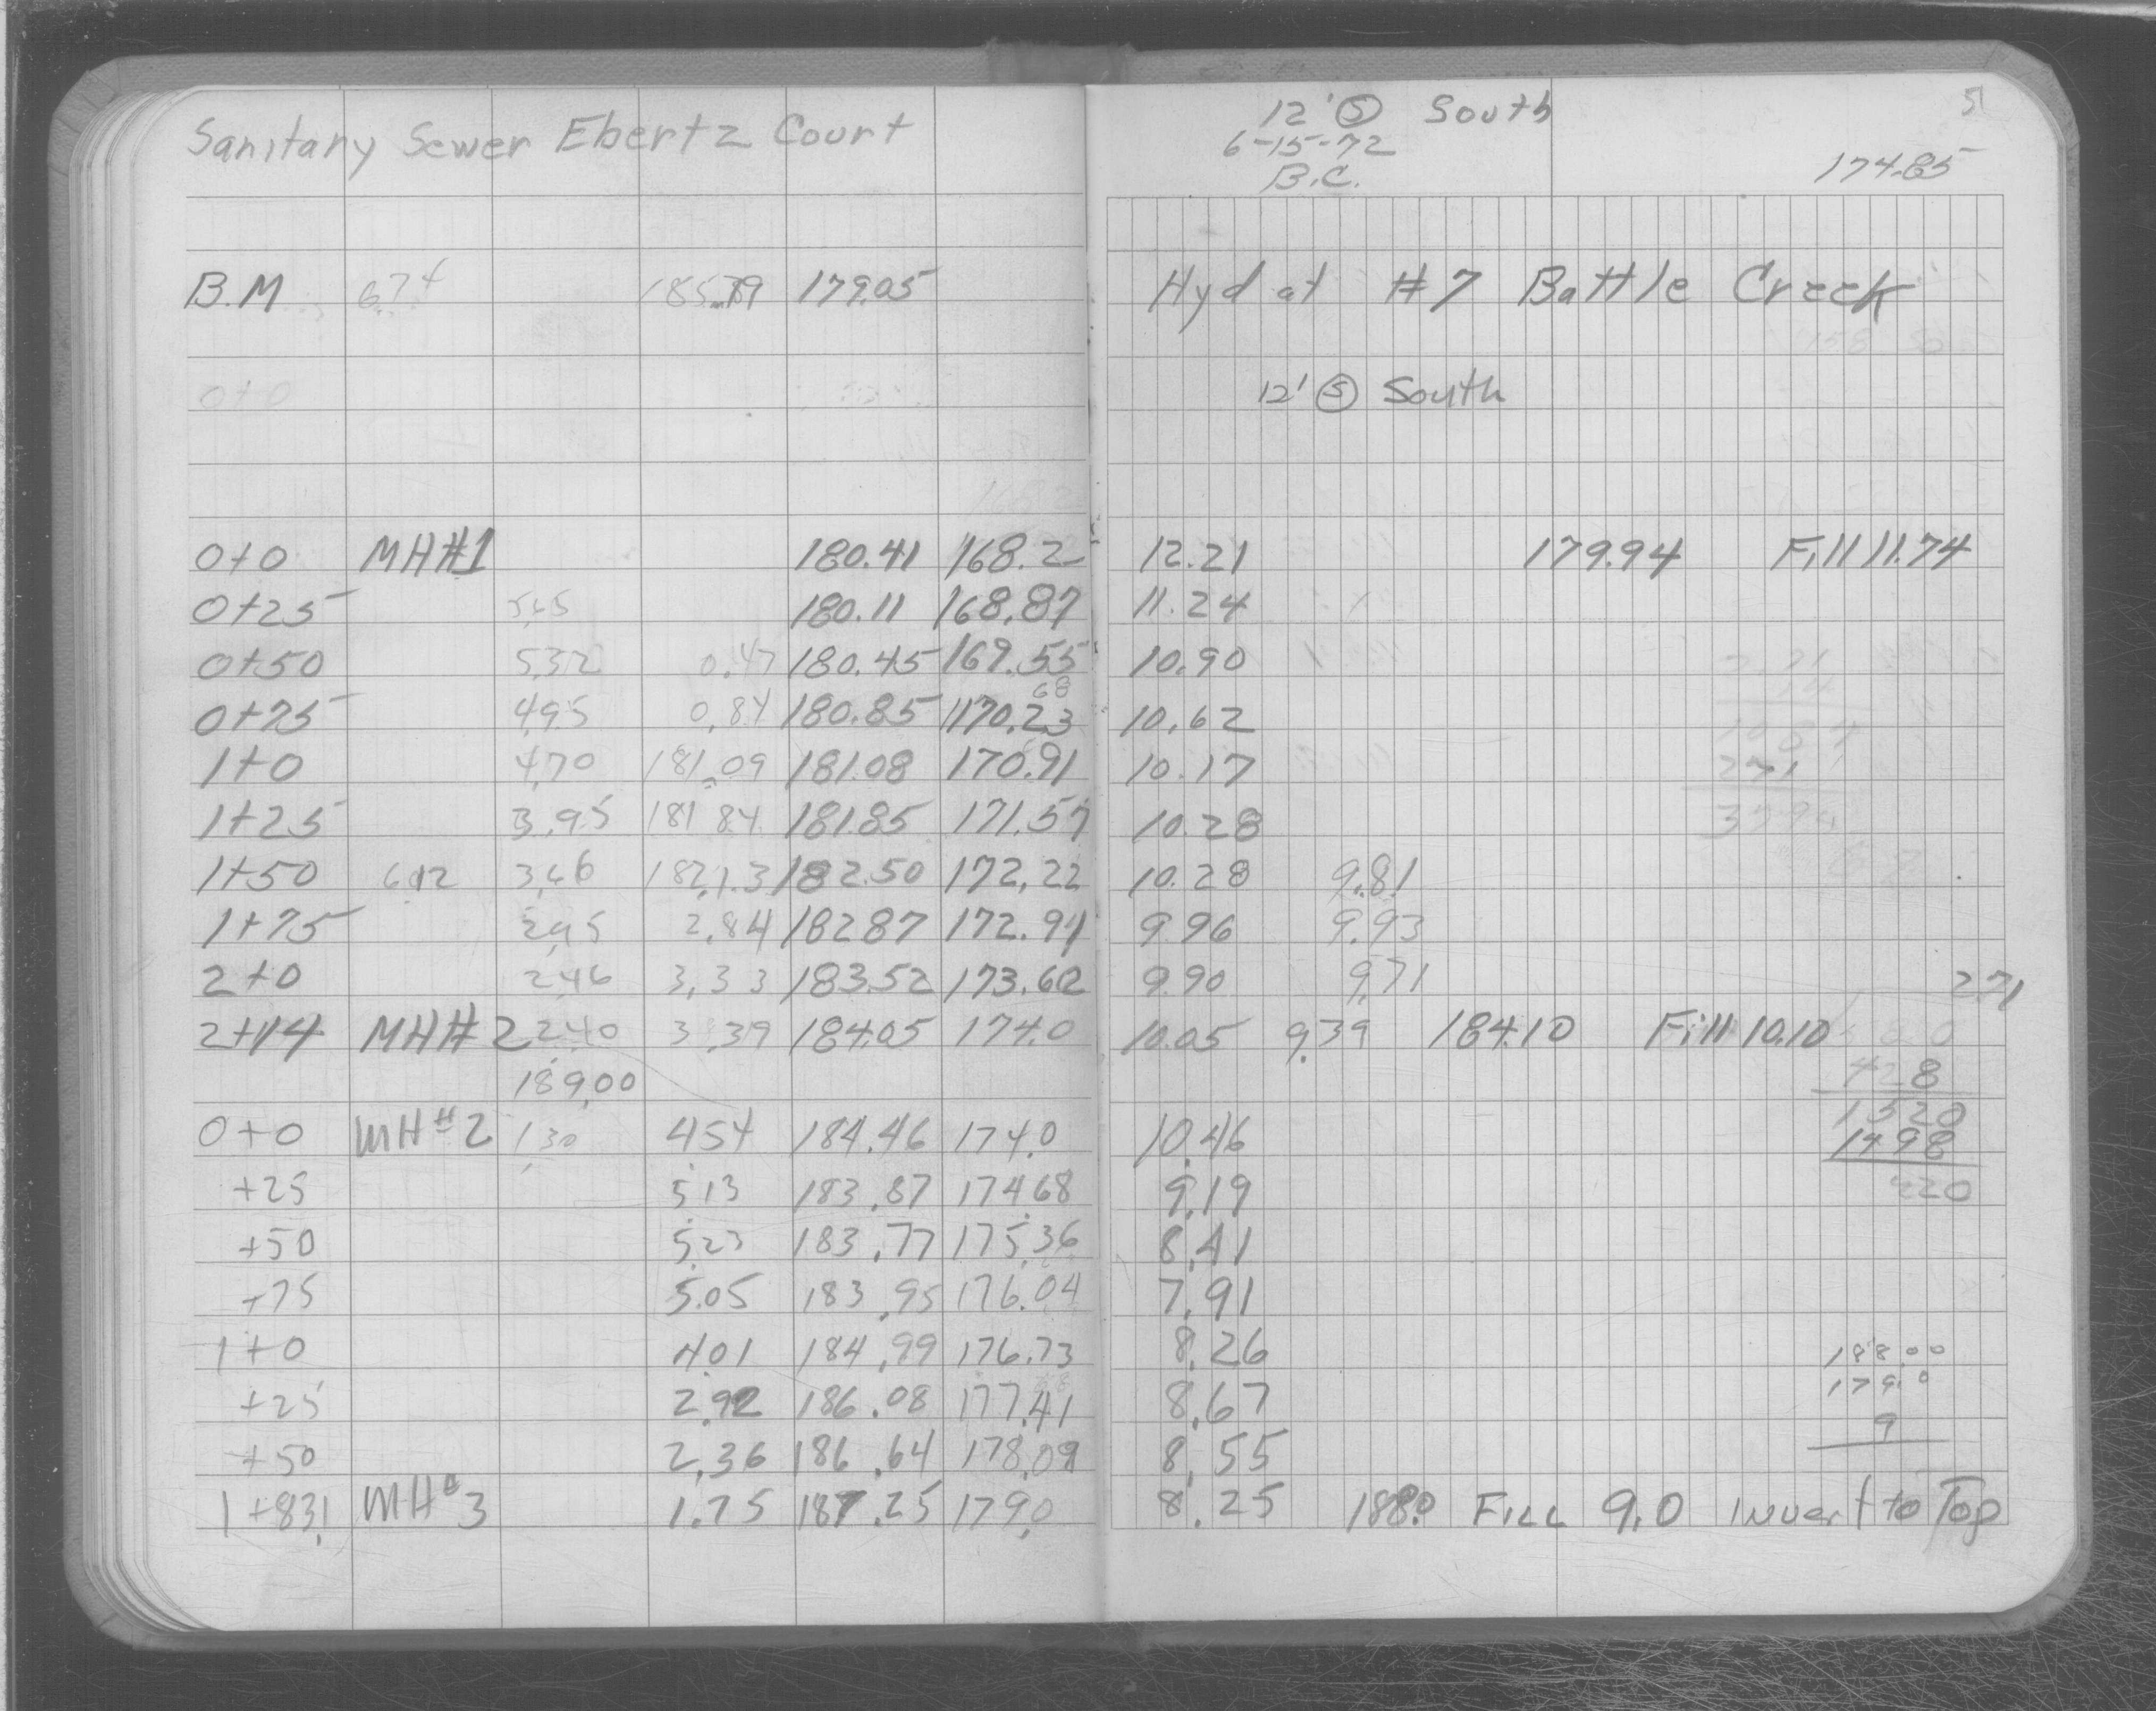 Sanitary Sewer Ebertz Court
12' Ⓢ South 5
6-15-72
B.C. 174.85
B.M 6.74 185.79 179.05 Hyd at #7 Battle Creek
0+0 12' Ⓢ South
0+0 MH#1 180.41 168.2 12.21 179.94 Fill 11.74
0+25 5.65 180.11 168.87 11.24
0+50 5.32 0.47 180.45 169.55 10.90
68
0+75 4.95 0.84 180.85 170.23 10.62
1+0 4.70 181.09 181.08 170.91 10.17
1+25 3.95 181.84 181.85 171.57 10.28
1+50 3.66 182.13 182.50 172.22 10.28 9.81
1+75 2.95 2.84 182.87 172.91 9.96 9.93
2+0 2.46 3.33 183.52 173.62 9.90 9.71 2.71
2+14 MH#2 2.40 3.39 184.05 174.0 10.05 9.39 184.10 Fill 10.10
189.00 428
0+0 MH#2 1.30 4.54 184.46 174.0 10.46 1520
1498
+25 5.13 183.87 174.68 9.19 220
+50 5.23 183.77 175.36 8.41
+75 5.05 183.95 176.04 7.91
1+0 4.01 184.99 176.73 8.26 188.00
179.0
+25 2.92 186.08 177.41 8.67 9
+50 2.36 186.64 178.09 8.55
1+83.1 MH#3 1.75 187.25 179.0 8.25 188.0 FILL 9.0 Invert to Top